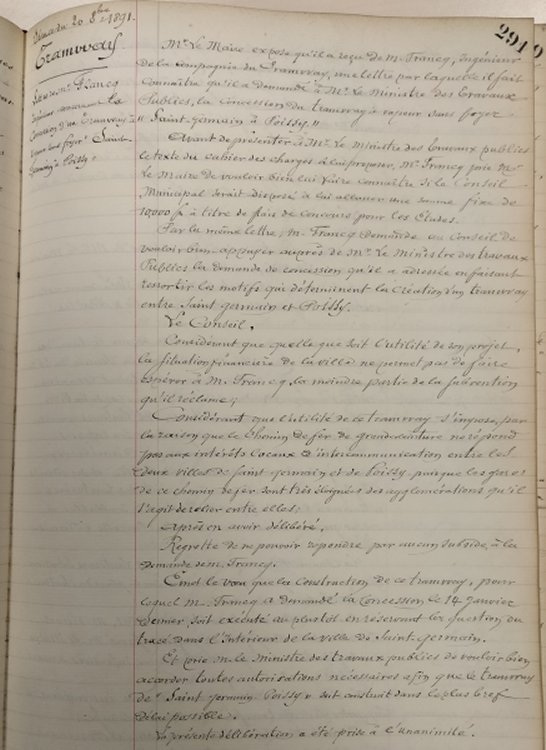 Séance du 20 8bre 1891.
291
Tramway
Lettre de M. Francq
concernant la
Concession d'un Tramway à
vapeur sans foyer "Saint-
Germain à Poissy"
Mr. Le Maire expose qu'il a reçu de M. Francq, Ingénieur
de la Compagnie du Tramway, une lettre par laquelle il fait
connaître qu'il a demandé à Mr. Le Ministre des Travaux
Publics, la Concession du tramway à vapeur sans foyer
"Saint-Germain à Poissy"
Avant de présenter à Mr. Le Ministre des travaux publics
le texte du cahier des charges à lui proposer, Mr. Francq prie Mr.
Le Maire de vouloir bien lui faire connaître si le Conseil
Municipal serait disposé à lui allouer une somme fixe de
10,000 f. à titre de frais de concours pour les Études.
Par la même lettre, M. Francq demande au Conseil de
vouloir bien appuyer auprès de Mr. Le Ministre des travaux
Publics la demande de concession qu'il a adressée en faisant
ressortir les motifs qui déterminent la création d'un tramway
entre Saint germain et Poissy.
Le Conseil,
Considérant que quelle que soit l'utilité de son projet,
la situation financière de la ville ne permet pas de faire
espérer à M. Francq la moindre partie de la subvention
qu'il réclame;
Considérant que l'utilité de ce tramway s'impose, par
la raison que le Chemin de fer de grande ceinture ne répond
pas aux intérêts locaux d'intercommunication entre les
deux villes de Saint-germain et de Poissy, puisque les gares
de ce chemin de fer sont très éloignées des agglomérations qu'il
s'agit de relier entre elles;
Après en avoir délibéré,
Regrette de ne pouvoir répondre par aucun subside, à la
demande de M. Francq.
Émet le vœu que la construction de ce tramway, pour
lequel M. Francq a demandé la Concession le 14 Janvier
dernier soit exécuté au plus tôt en réservant la question du
tracé dans l'intérieur de la ville de Saint-Germain.
Et prie M. le Ministre des travaux publics de vouloir bien
accorder toutes autorisations nécessaires afin que le tramway
de "Saint germain-Poissy" soit construit dans le plus bref
délai possible.
La présente délibération a été prise à l'unanimité.